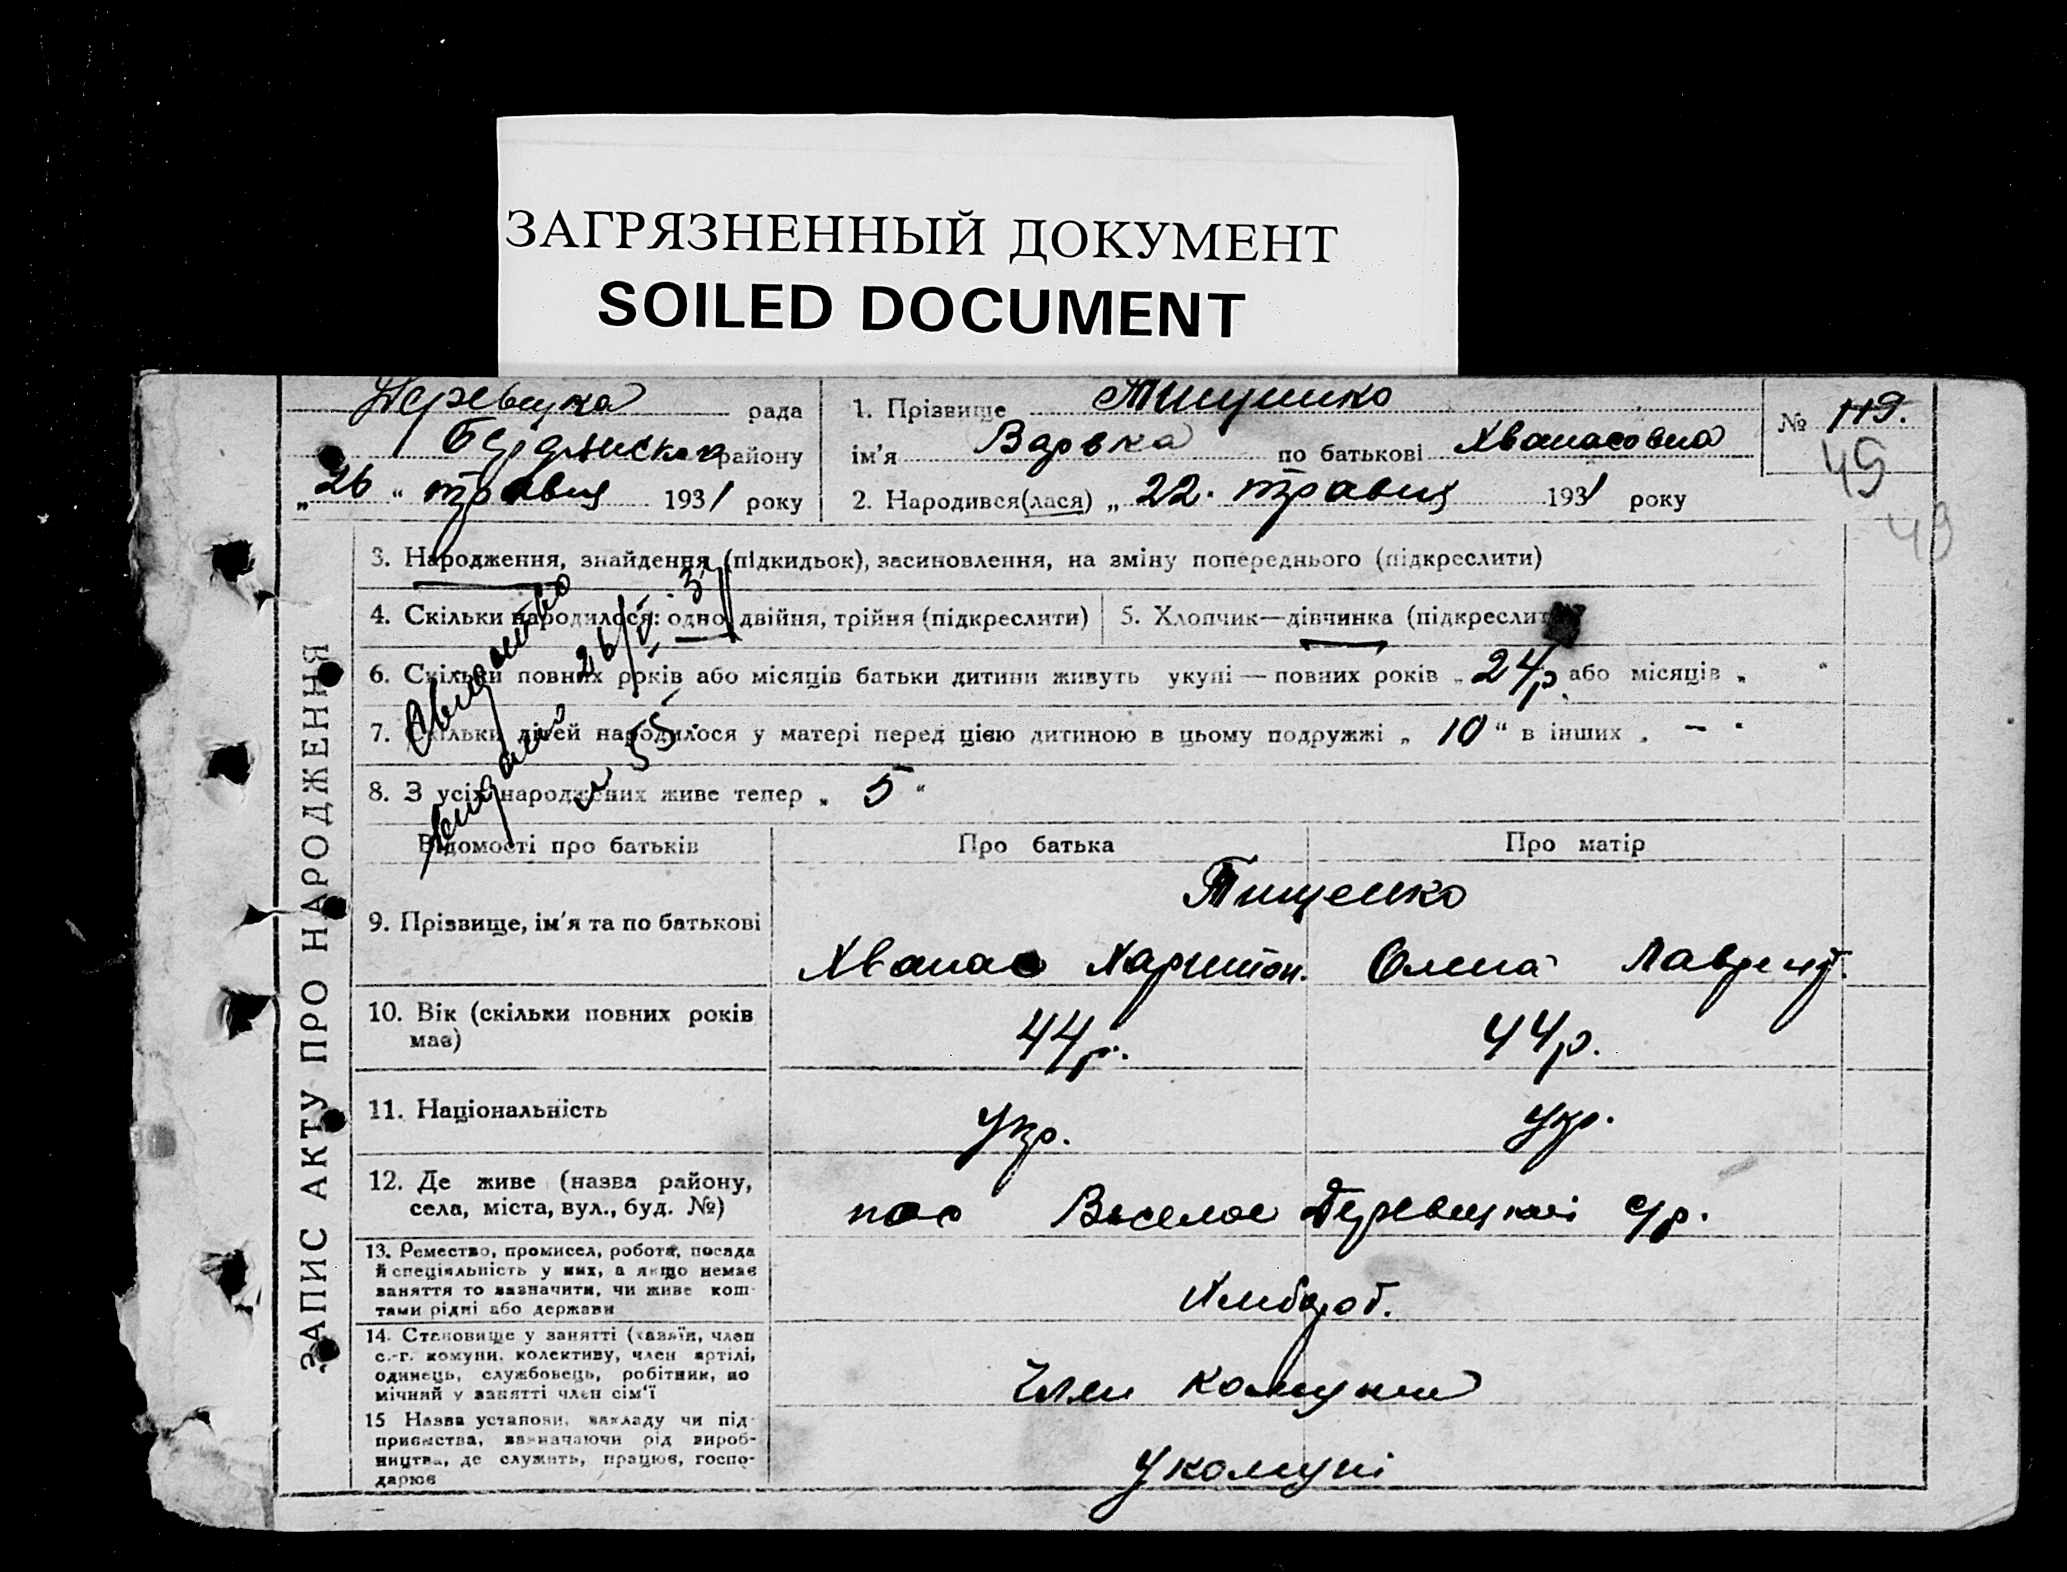 ЗАГРЯЗНЕННЫЙ ДОКУМЕНТ
SOILED DOCUMENT
рада
району
„26“ травня 1931 року
1. Прізвище Тищенко
ім'я Варвка по батькові Хванасовна
2. Народився(лася) „22. травня 1931 року
№ 119.
49
49
ЗАПИС АКТУ ПРО НАРОДЖЕННЯ
3. Народження, знайдення (підкидьок), засиновлення, на зміну попереднього (підкреслити)
4. Скільки народилося: одно, двійня, трійня (підкреслити)
5. Хлопчик—дівчинка (підкреслити)
6. Скільки повних років або місяців батьки дитини живуть укупі — повних років „24р. або місяців „ “
7. Скільки дітей народилося у матері перед цією дитиною в цьому подружжі „10“ в інших „ – “
8. З усіх народжених живе тепер „5“
26/V 31
№ 55
Відомості про батьків
Про батька
Про матір
9. Прізвище, ім'я та по батькові
Тищенко
Хванас Харитон.
Олена Лаврент.
10. Вік (скільки повних років
має)
44р.
44р.
11. Національність
Укр.
Укр.
12. Де живе (назва району,
села, міста, вул., буд. №)
пос Веселое с/р.
13. Ремество, промисел, робота, посада
й спеціяльність у них, а якщо немає
заняття то зазначити, чи живе кош-
тами рідні або держави
Хлібороб.
14. Становище у занятті (хазяїн, член
с.-г. комуни, колективу, член артілі,
одинець, службовець, робітник, по
мічний у занятті член сім'ї
Член комуни
15 Назва установи, закладу чи під-
приємства, зазначаючи рід вироб-
ництва, де служить, працює, госпо-
дарює
У комуні